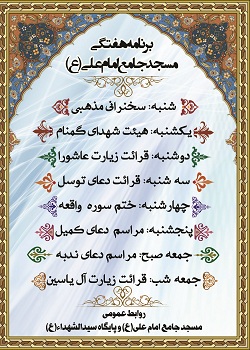 برنامه هفتگی
مسجد جامع امام علی (ع)
شنبه: سخنرانی مذهبی
یکشنبه: هیئت شهدای گمنام
دوشنبه: قرائت زیارت عاشورا
سه شنبه: قرائت دعای توسل
چهارشنبه: ختم سوره واقعه
پنجشنبه: مراسم دعای کمیل
جمعه صبح: مراسم دعای ندبه
جمعه شب: قرائت زیارت آل یاسین
روابط عمومی
مسجد جامع امام علی (ع) و پایگاه سیدالشهداء (ع)